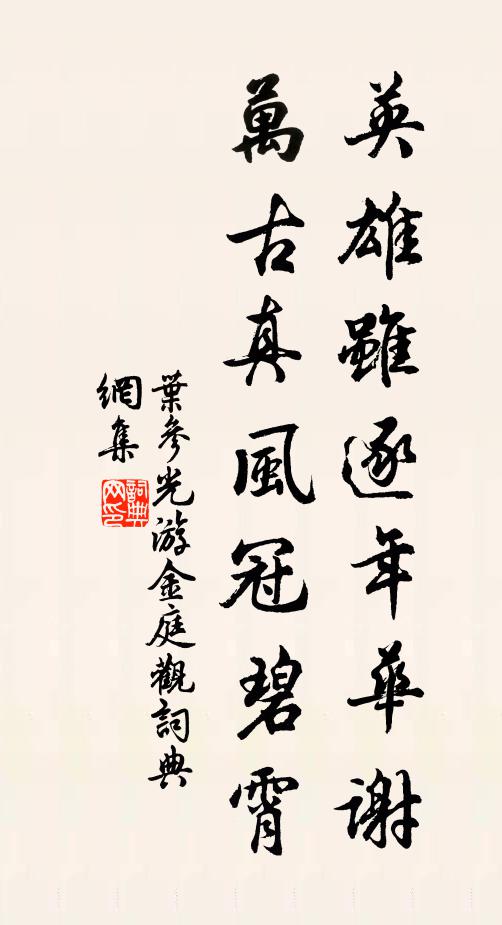 英雄雖逐年華謝
萬古真風冠碧霄
葉參光游金庭觀詞典
網集
詞典網印